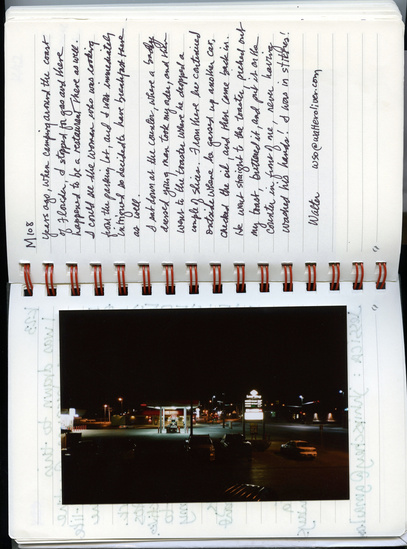 M108
Years ago, when camping around the coast
of Florida, I stopped for gas and there
happened to be a restaurant there as well.
I could see the woman who was cooking
from the parking lot, and I was immediately
intrigued so decided to have breakfast there
as well.
I sat down at the counter, where a badly
dressed young man took my order, and then
went to the toaster where he dropped a
couple of slices. From there he continued
outside where he gassed up another car,
checked the oil, and then came back in.
He went straight to the toaster, fished out
my toast, buttered it, and put it on the
counter in front of me, never having
washed his hands! I was in stitches!
Walter wso@walterolsen.com